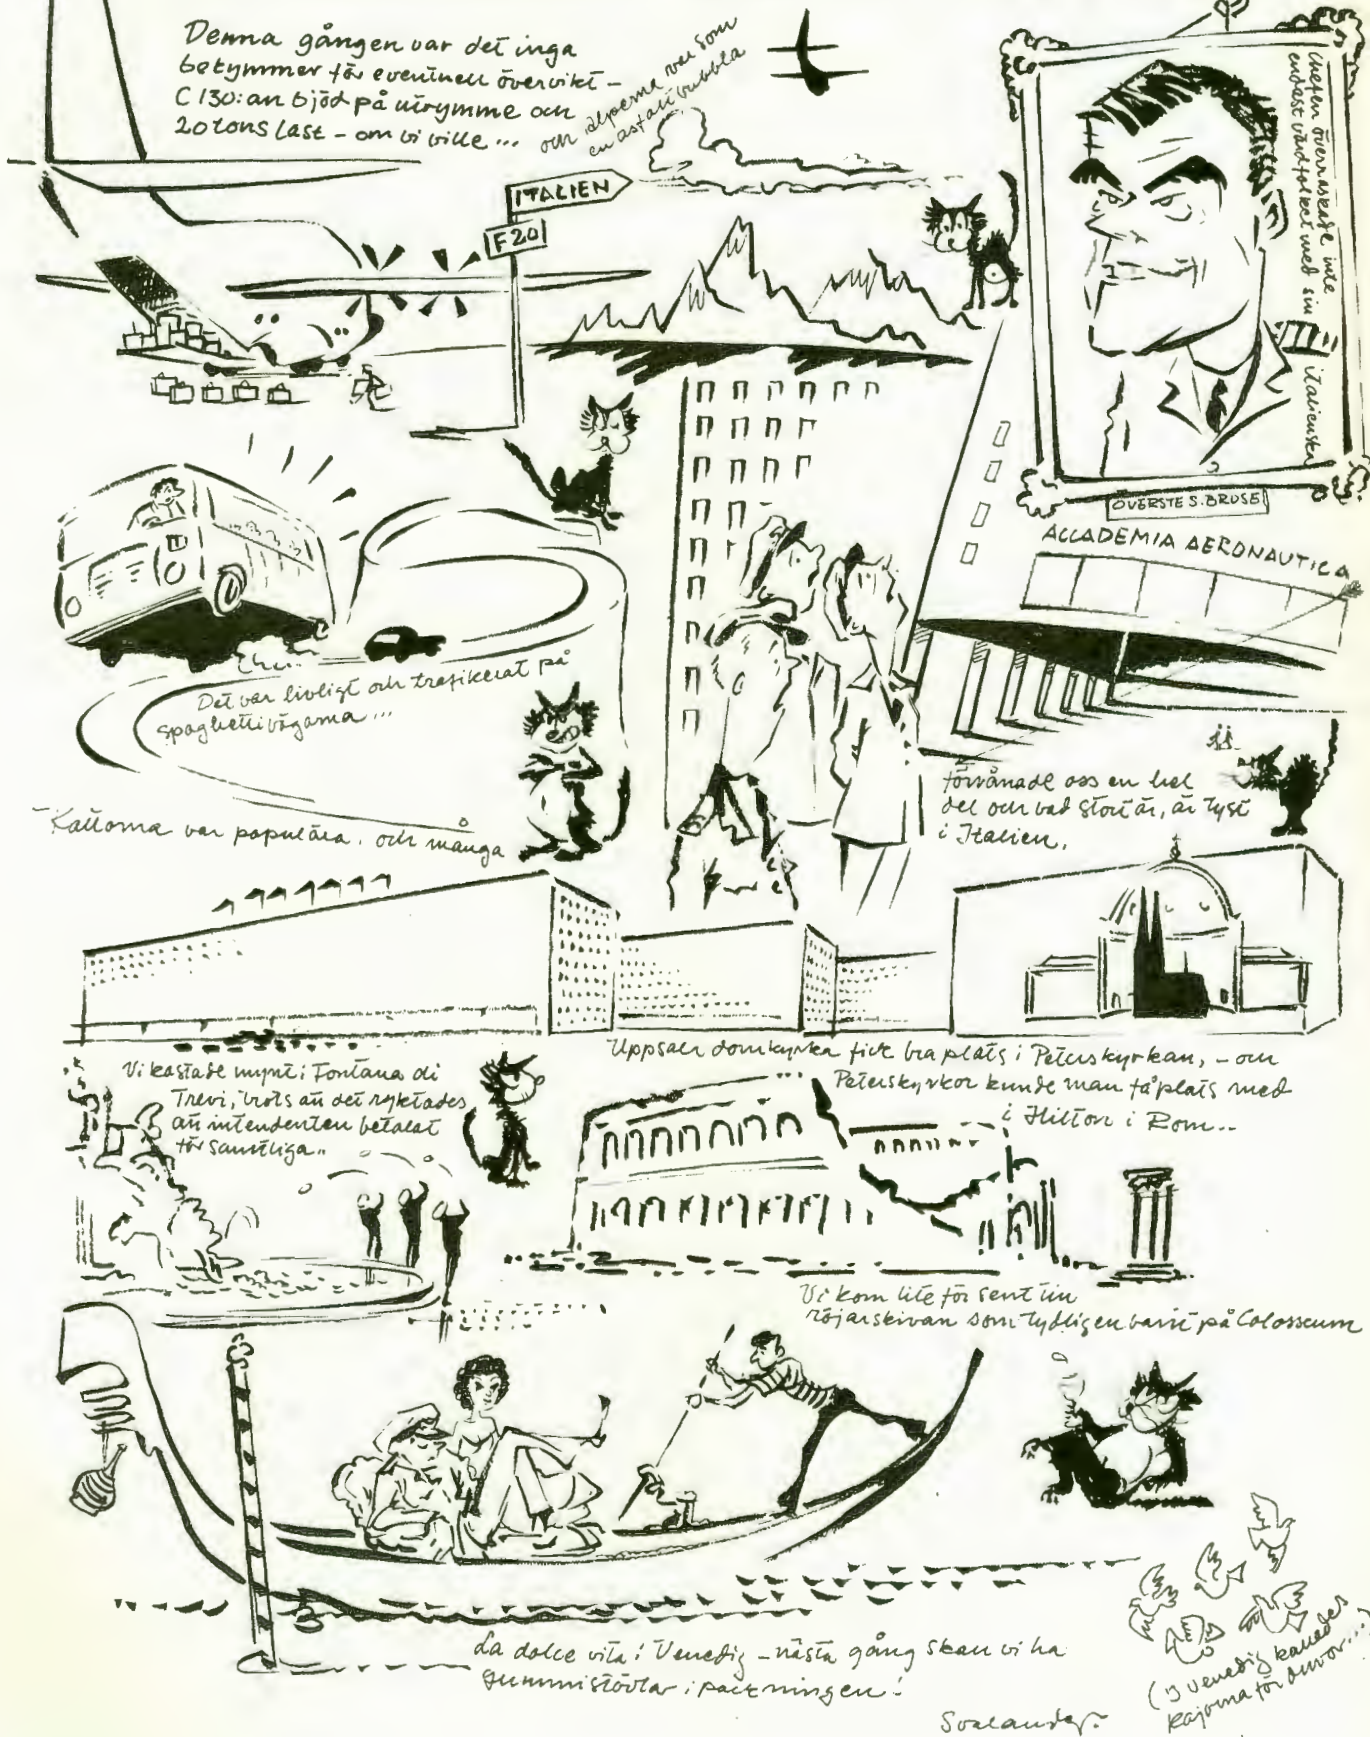 Denna gången var det inga
bekymmer för eventuell övervikt -
C 130:an bjöd på utrymme och
20 tons last - om vi ville ...
och alperna var som
en asfaltbubbla
ITALIEN
F20
Chefen överraskade inte
endast värdfolket med sin
italienska
ÖVERSTE S. BRUSE
ACCADEMIA AERONAUTICA
förvånade oss en hel
del och vad stort är, är tyst
i Italien.
Det var livligt och trafikerat på
spaghettivägarna ...
Katterna var populära, och många
Uppsala domkyrka fick bra plats i Peterskyrkan, - och
Peterskyrkor kunde man få plats med
i Hilton i Rom...
Vi kastade mynt i Fontana di
Trevi, trots att det ryktades
att intendenten betalat
för samtliga..
Vi kom lite för sent till
röjarskivan som tydligen varit på Colosseum
La dolce vita i Venedig - nästa gång skall vi ha
gummistövlar i packningen!
(I Venedig kallades
kajorna för duvor...)
Svalander.